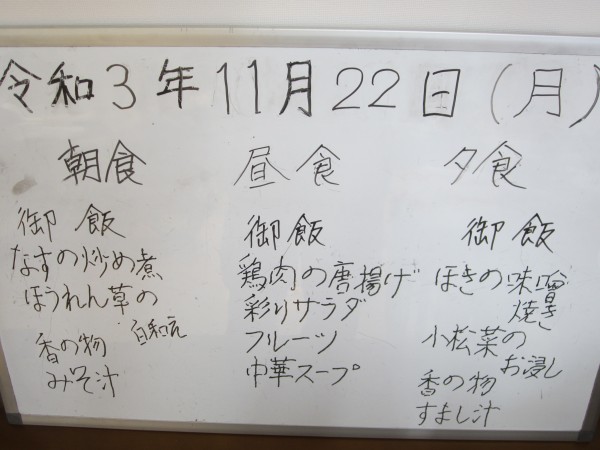 令和3年11月22日(月)
朝食
御飯
なすの炒め煮
ほうれん草の
白和え
香の物
みそ汁
昼食
御飯
鶏肉の唐揚げ
彩りサラダ
フルーツ
中華スープ
夕食
御飯
ほきの味噌
焼き
小松菜の
お浸し
香の物
すまし汁